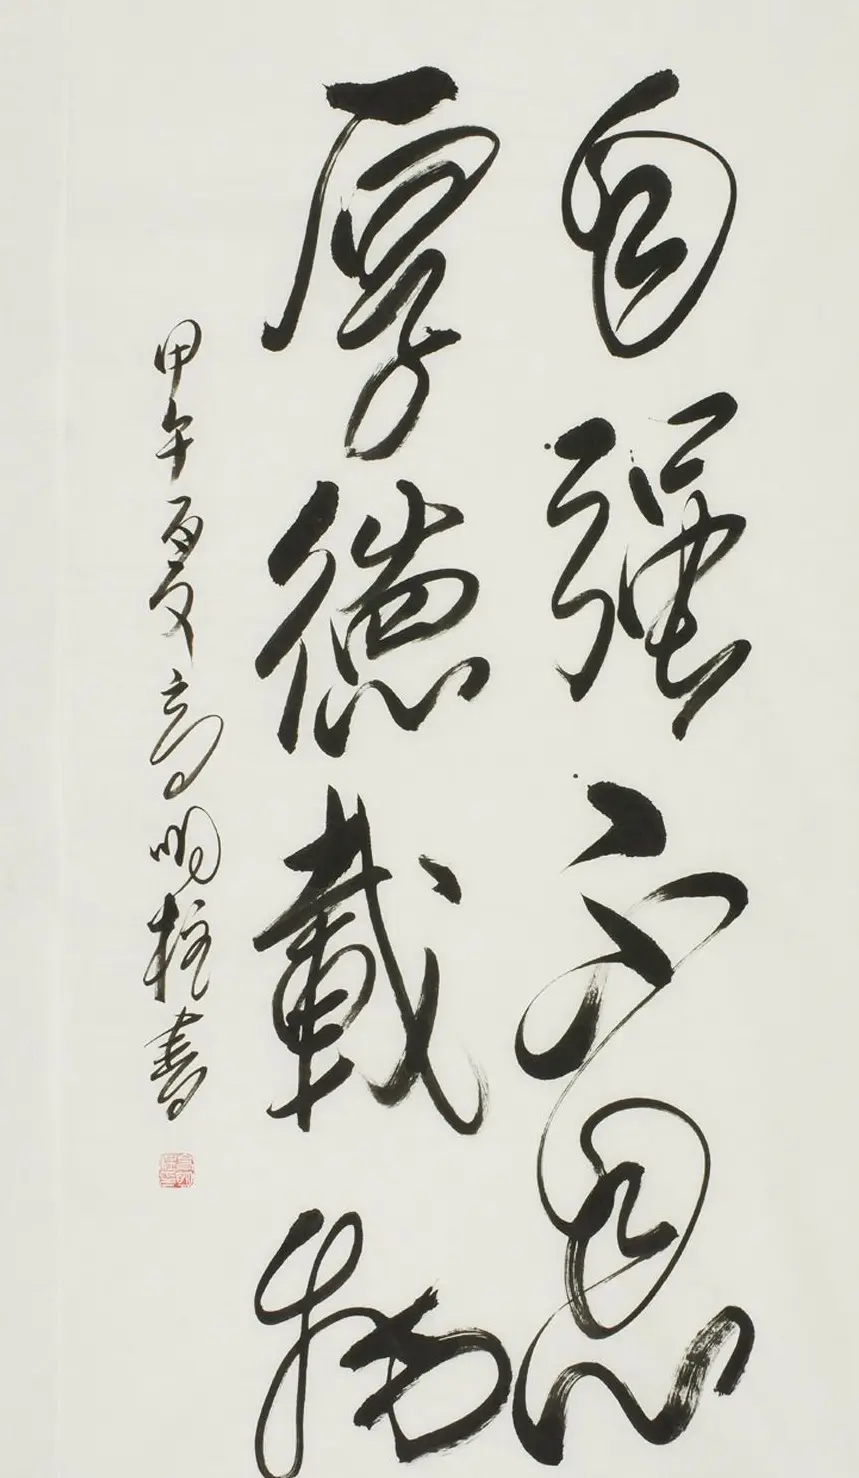 自强不息
厚德載物
甲午夏高明柱書